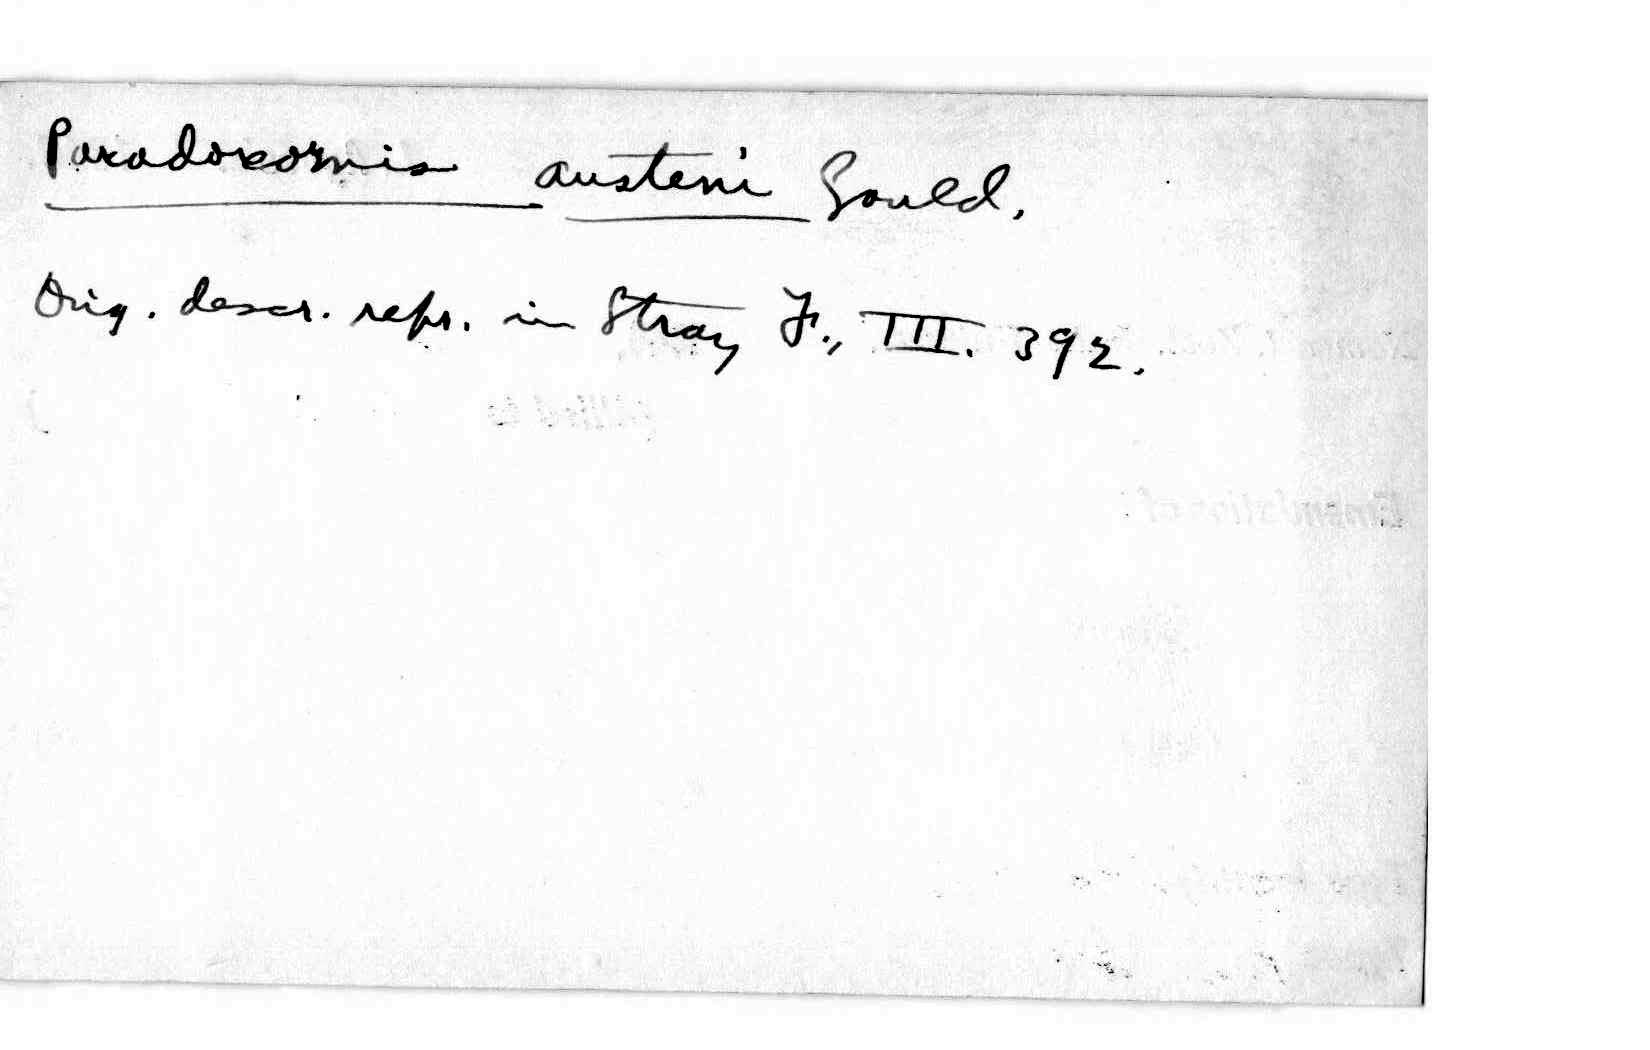 Paradoxornis austeni Gould.
Orig. descr. repr. in Stray F., III. 392.